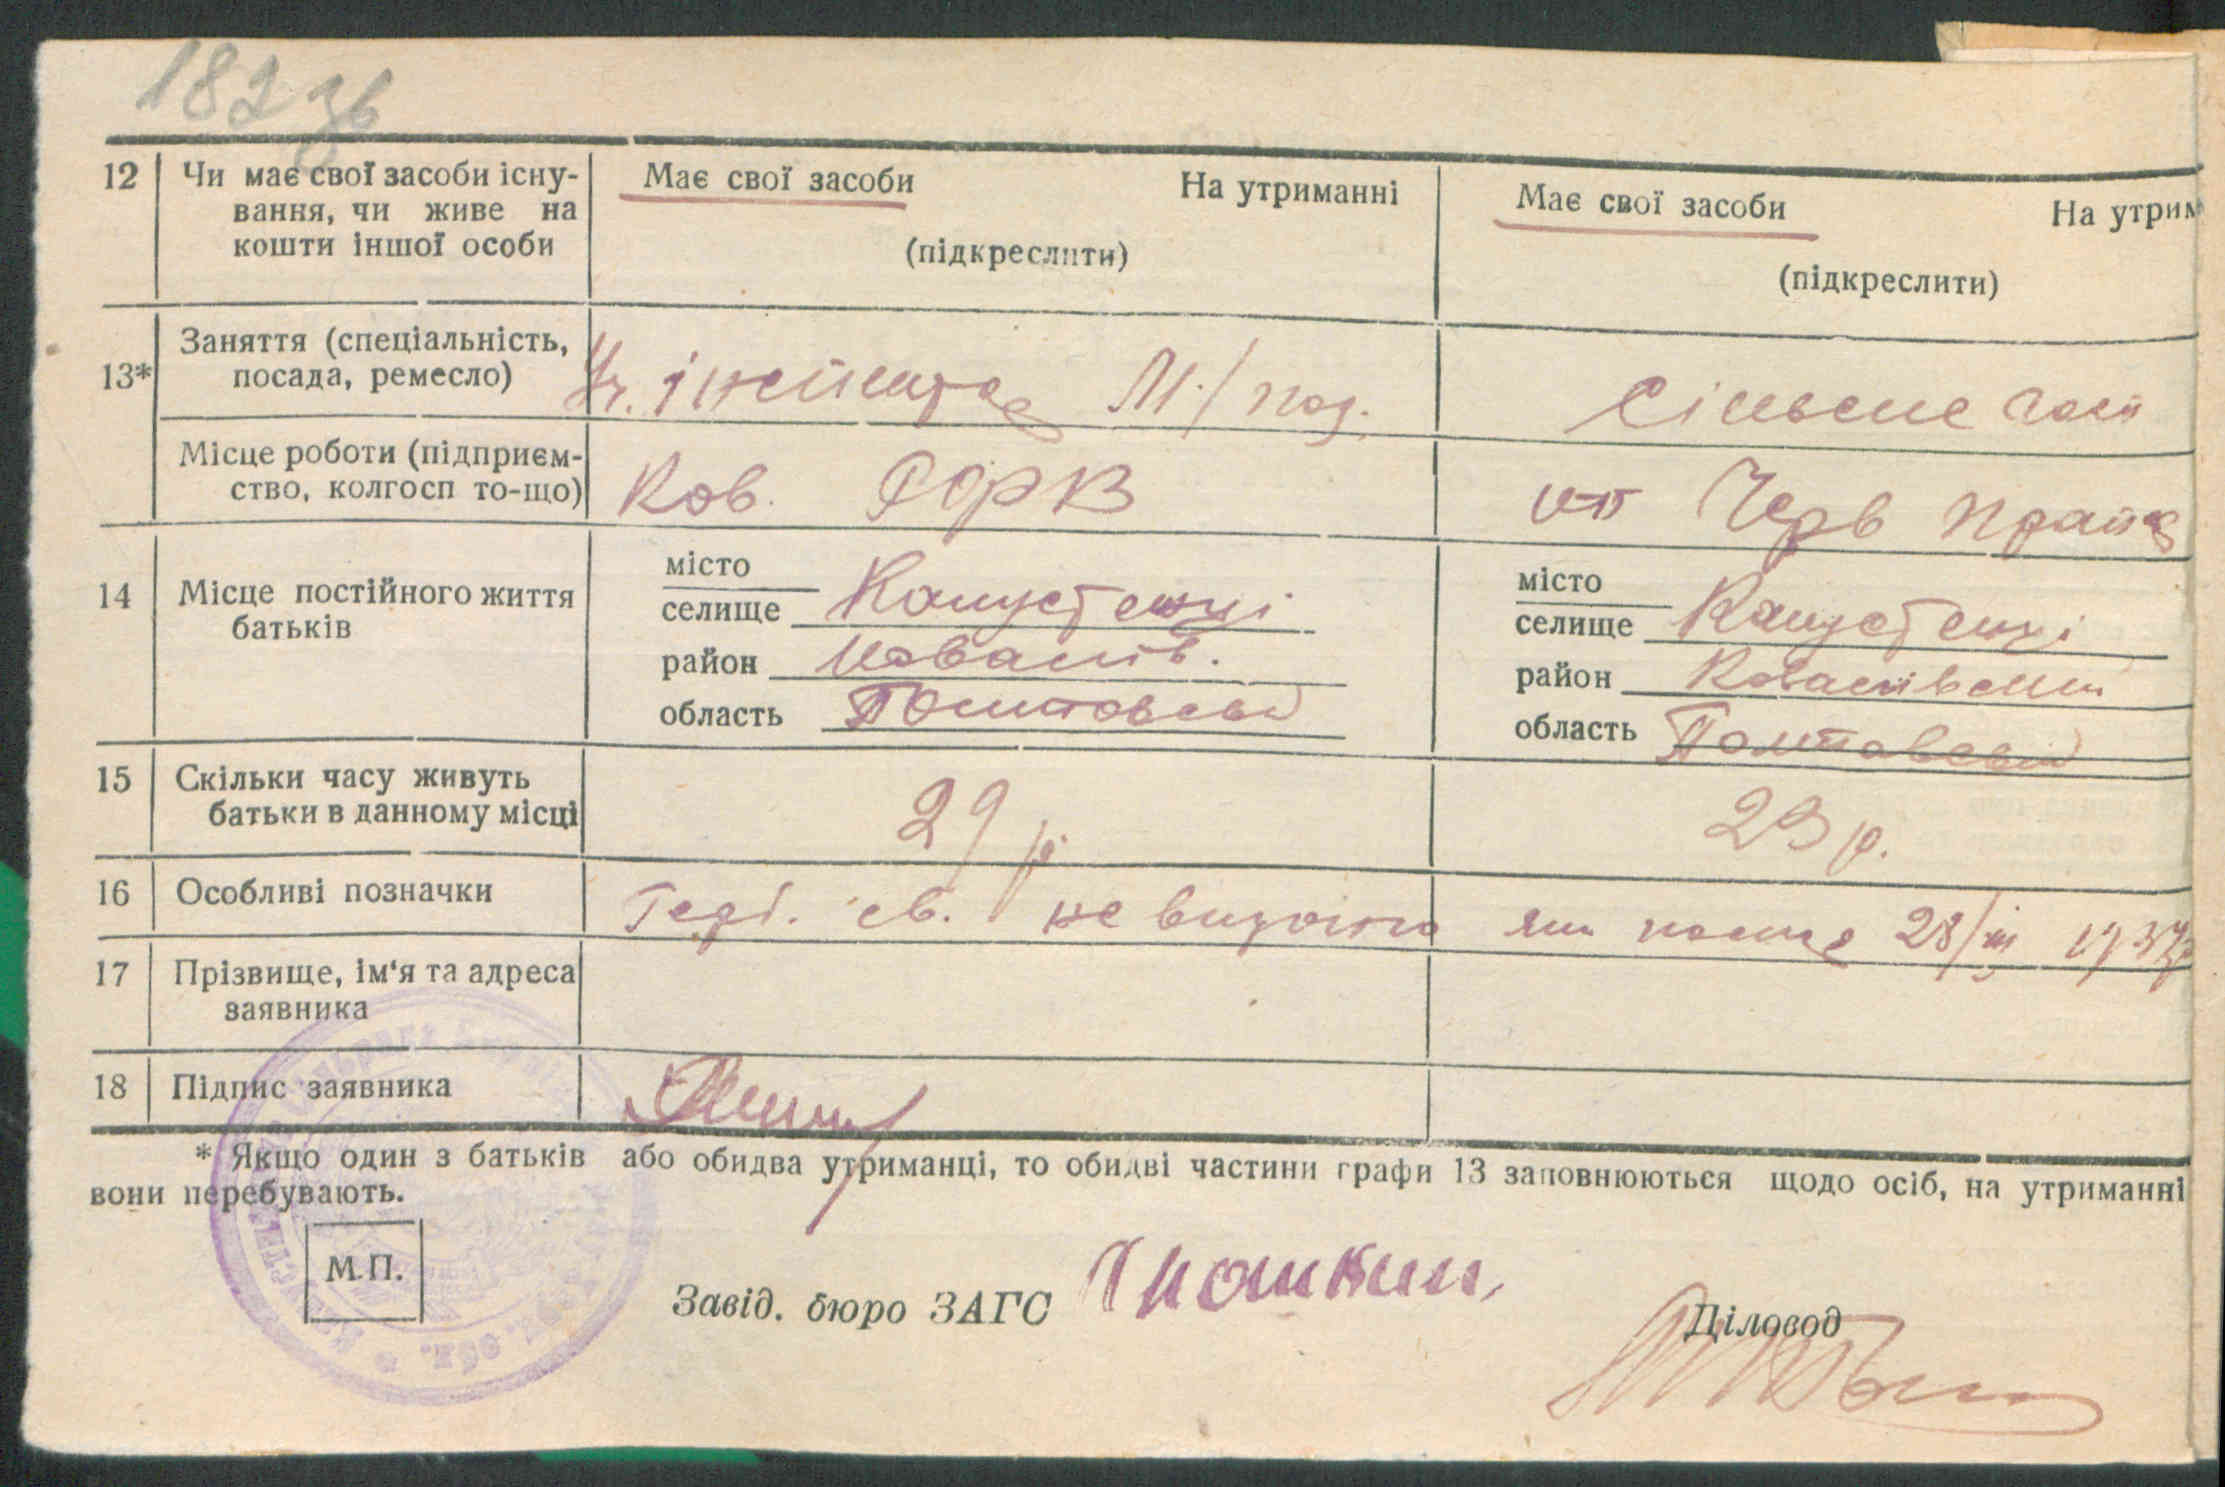 182 зв
12 Чи має свої засоби існу-
вання, чи живе на
кошти іншої особи
Має свої засоби На утриманні
(підкреслити)
Має свої засоби На утрим
(підкреслити)
13* Заняття (спеціальність,
посада, ремесло)
М/под.
Сільське госп
Місце роботи (підприєм-
ство, колгосп то-що)
Ков.
Черв
14 Місце постійного життя
батьків
місто
селище Капустенці
район Ковалів.
область Полтавська
місто
селище Капустенці
район Ковалівський
область Полтавська
15 Скільки часу живуть
батьки в данному місці
29 р
23 р.
16 Особливі позначки
св. не видано 28/III 1937р
17 Прізвище, ім'я та адреса
заявника
18 Підпис заявника
* Якщо один з батьків або обидва утриманці, то обидві частини графи 13 заповнюються щодо осіб, на утриманні
вони перебувають.
М.П.
Завід. бюро ЗАГС
Діловод